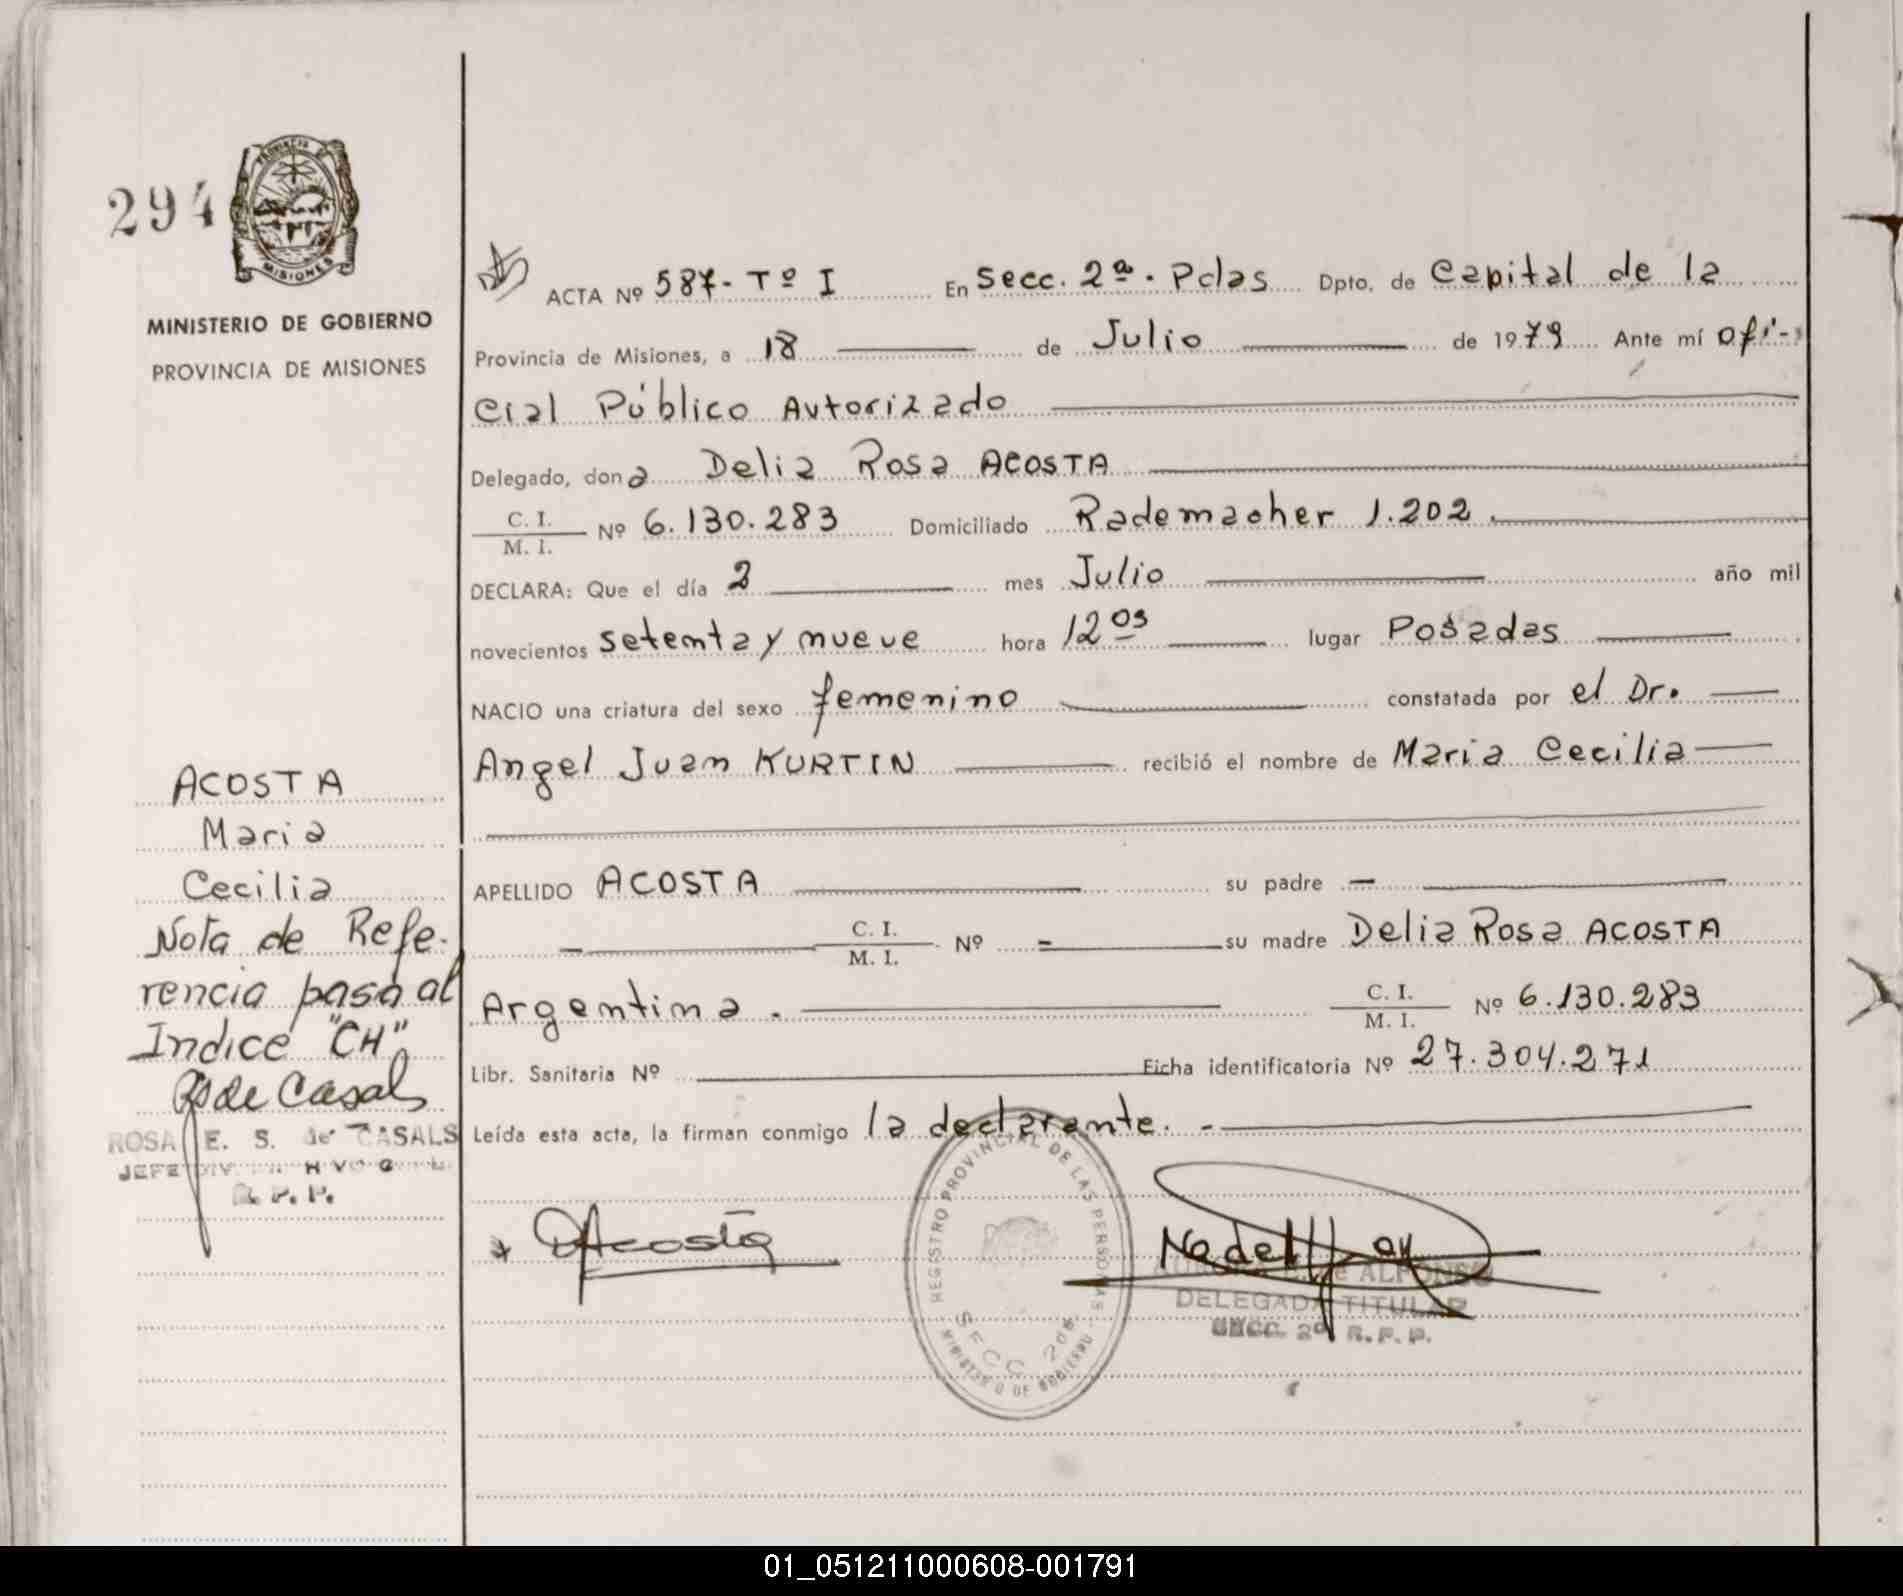 294
PROVINCIA DE
MISIONES
MINISTERIO DE GOBIERNO
PROVINCIA DE MISIONES
ACTA Nº 587- Tº I En Secc. 2ª. Pdas Dpto. de Capital de la
Provincia de Misiones, a 18 de Julio de 1979 Ante mí ofi-
cial Público Autorizado
Delegado, dona Delia Rosa ACOSTA
C. I.
M. I. Nº 6.130.283 Domiciliado Rademacher 1.202.
DECLARA: Que el día 2 mes Julio año mil
novecientos setenta y nueve hora 12 05 lugar Posadas
NACIO una criatura del sexo femenino constatada por el Dr.
Angel Juan KURTIN recibió el nombre de Maria Cecilia
APELLIDO ACOSTA su padre —
— C. I.
M. I. Nº = su madre Delia Rosa ACOSTA
Argentina. C. I.
M. I. Nº 6.130.283
Libr. Sanitaria Nº Ficha identificatoria Nº 27.304.271
Leída esta acta, la firman conmigo la declarante. -
ACOSTA
Maria
Cecilia
Nota de Refe-
rencia pasa al
Indice "CH"
de Casals
ROSA E. S. de CASALS
JEFE DIV.
R. P. P.
DAcosta
REGISTRO PROVINCIAL DE LAS PERSONAS
SECC 2da
MINISTERIO DE GOBIERNO
de ALFONSO
DELEGADA TITULAR
SECC. 2ª R.P.P.
01_051211000608-001791